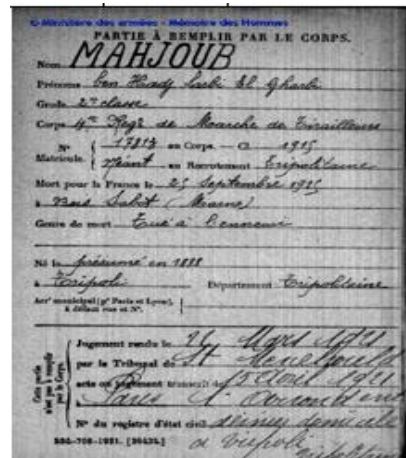 © Ministère des armées - Mémoire des Hommes
PARTIE À REMPLIR PAR LE CORPS.
Nom MAHJOUB
Prénoms ben Hadj Larbi El Gharbi
Grade 2e classe
Corps 4me Regt de Marche de Tirailleurs
N° 17813 au Corps. — Cl 1915
Matricule. Néant au Recrutement Tripolitaine
Mort pour la France le 25 Septembre 1915
à Bois Sabot (Marne)
Genre de mort Tué à l'ennemi
Né le présumé en 1888
à Tripoli Département Tripolitaine
Arrt municipal (pr Paris et Lyon),
à défaut rue et N°.
Cette partie n'est pas à remplir par le Corps.
Jugement rendu le 24 Mars 1921
par le Tribunal de St Menehould
acte ou jugement transcrit le 15 Avril 1921
à Paris 1er arrondissement
N° du registre d'état civil dernier domicile
à Tripoli
534-708-1921. [26434.]
Tripolitaine